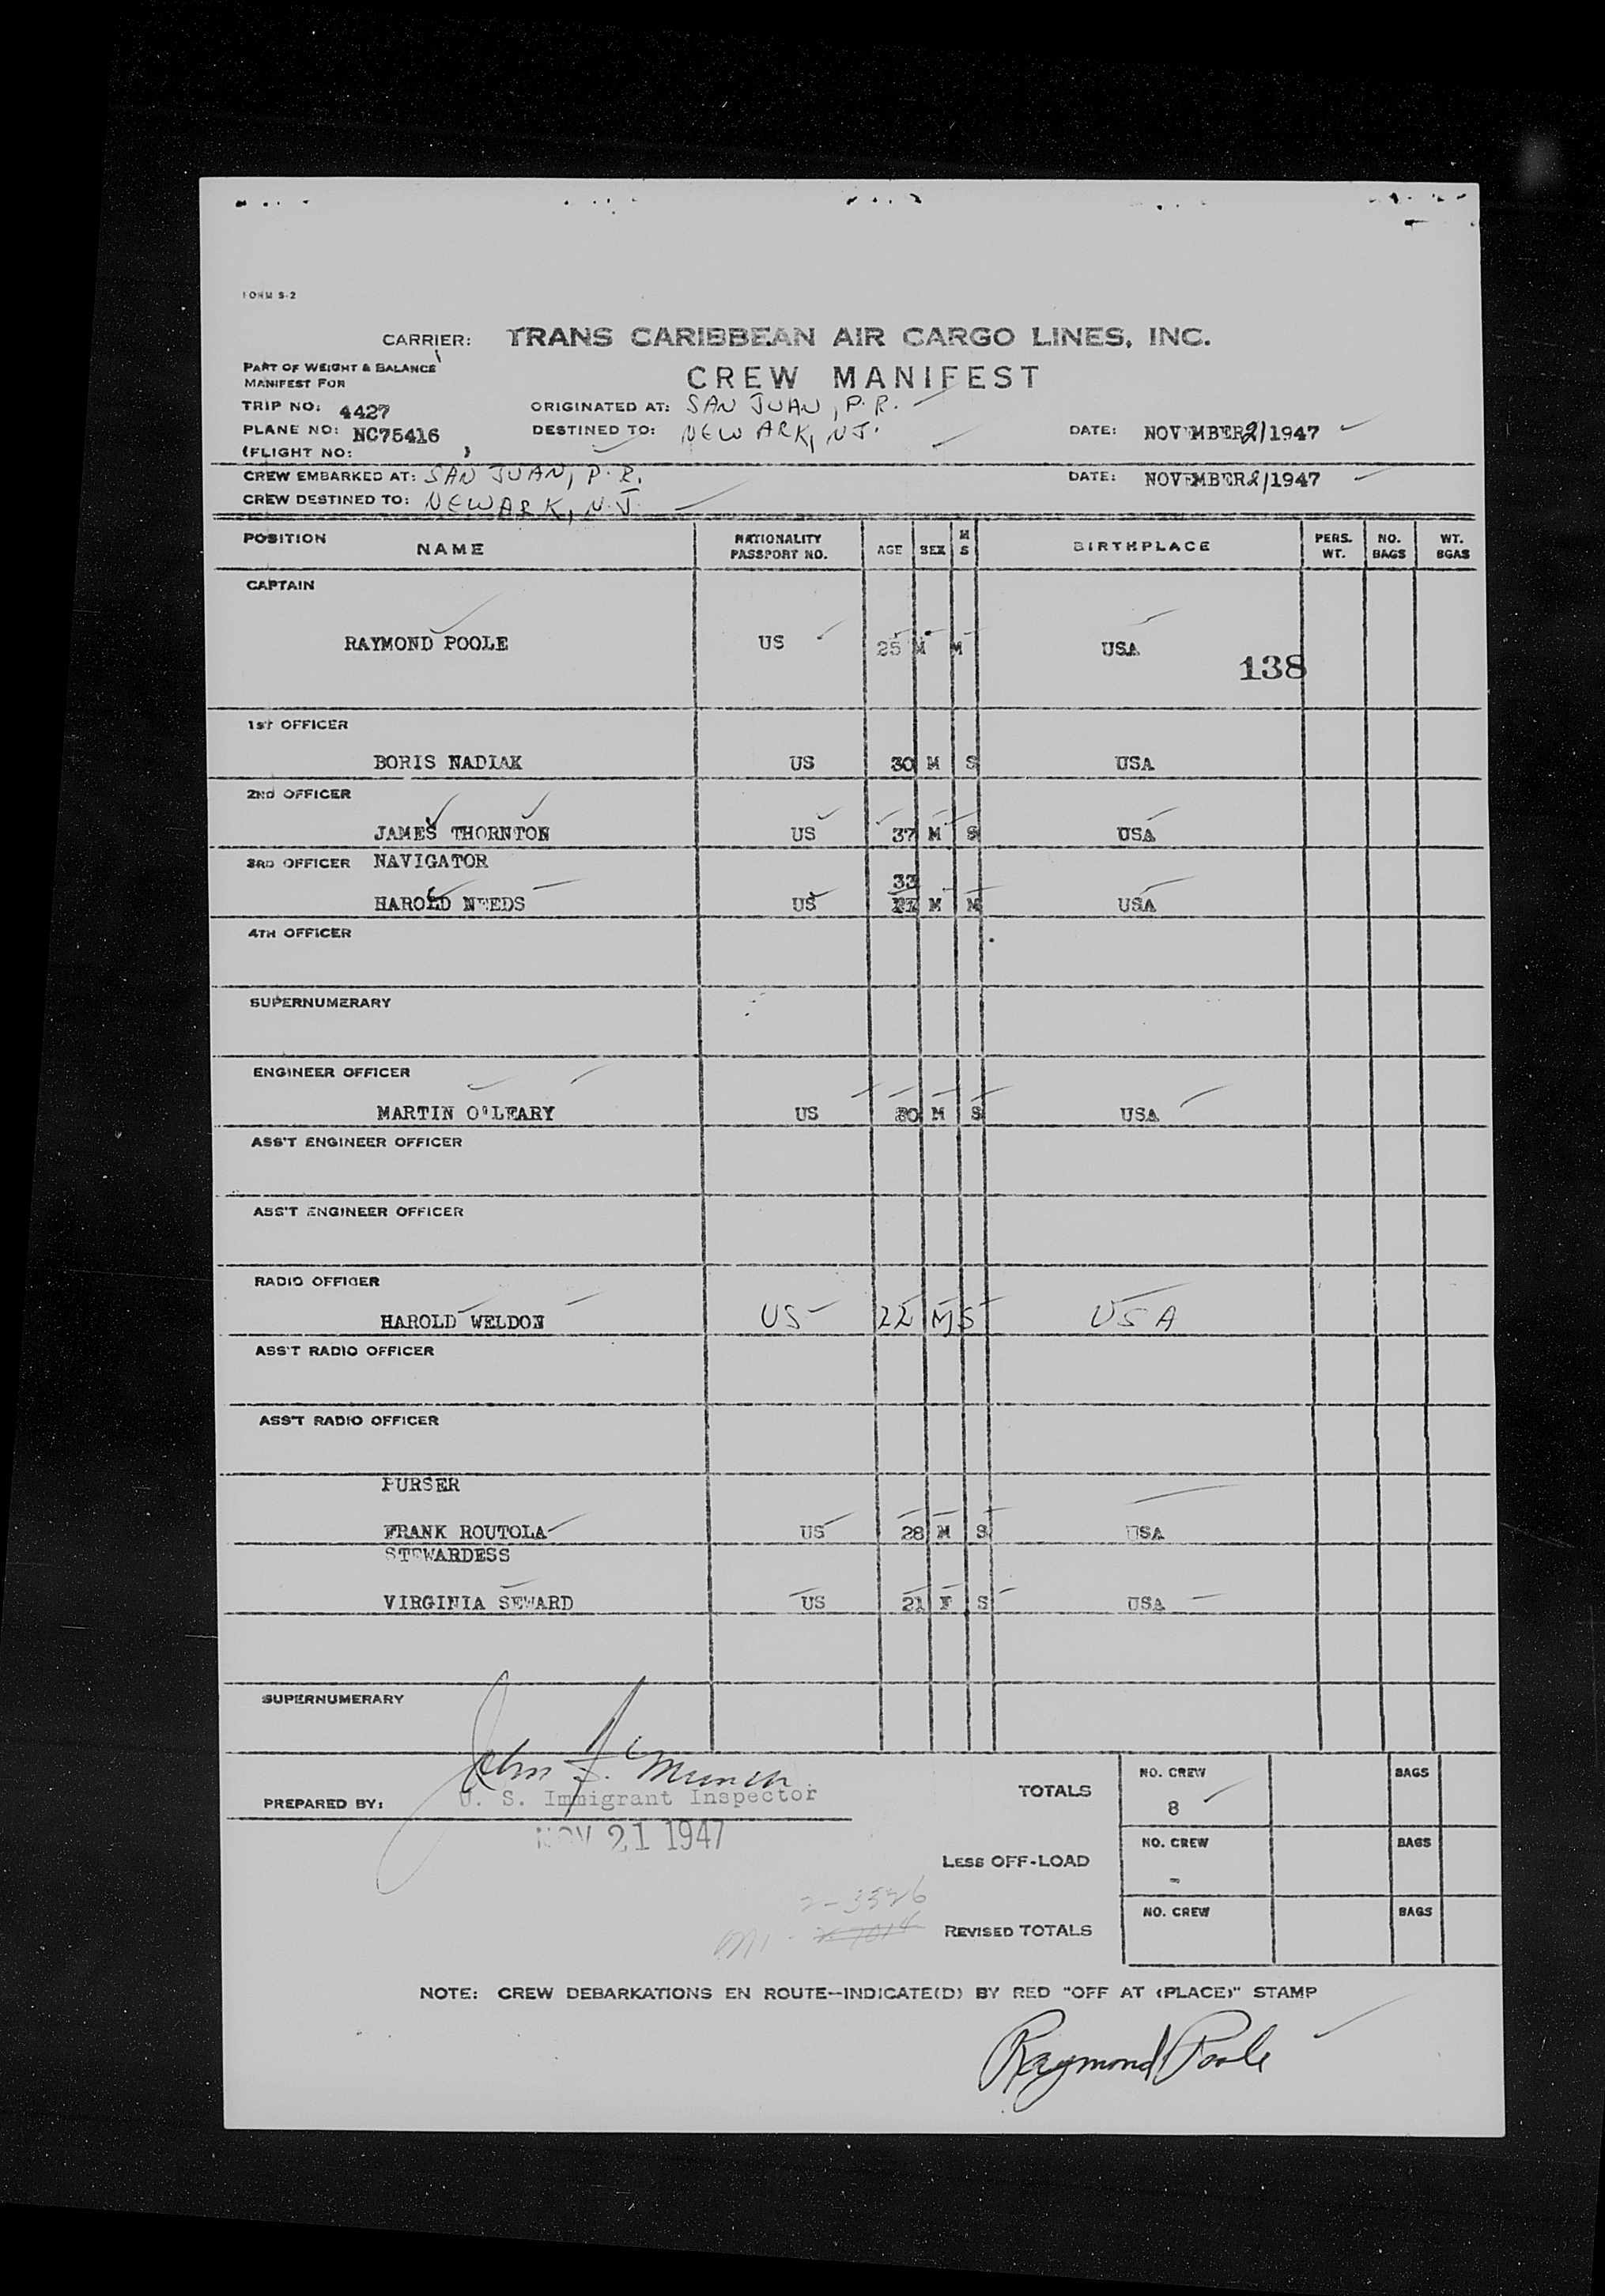 FORM S-2
CARRIER: TRANS CARIBBEAN AIR CARGO LINES, INC.
PART OF WEIGHT & BALANCE
MANIFEST FOR
CREW MANIFEST
TRIP NO: 4427 ORIGINATED AT: SAN JUAN, P.R.
PLANE NO: NC75416 DESTINED TO: NEWARK, N.J. DATE: NOVEMBER 21 1947
(FLIGHT NO: )
CREW EMBARKED AT: SAN JUAN, P.R. DATE: NOVEMBER 21 1947
CREW DESTINED TO: NEWARK, N.J.
POSITION NAME NATIONALITY PASSPORT NO. AGE SEX M S BIRTHPLACE PERS. WT. NO. BAGS WT. BGAS
CAPTAIN
RAYMOND POOLE US 25 M M USA
138
1ST OFFICER
BORIS NADIAK US 30 M S USA
2ND OFFICER
JAMES THORNTON US 37 M S USA
3RD OFFICER NAVIGATOR
33
HAROLD NEEDS US M M USA
4TH OFFICER
SUPERNUMERARY
ENGINEER OFFICER
MARTIN O'LEARY US 30 M S USA
ASS'T ENGINEER OFFICER
ASS'T ENGINEER OFFICER
RADIO OFFICER
HAROLD WELDON US 22 M S USA
ASS'T RADIO OFFICER
ASS'T RADIO OFFICER
PURSER
FRANK ROUTOLA US 28 M S USA
STEWARDESS
VIRGINIA SEWARD US 21 F S USA
SUPERNUMERARY
John
PREPARED BY: U. S. Immigrant Inspector
NOV 21 1947
TOTALS NO. CREW 8 BAGS
LESS OFF-LOAD NO. CREW - BAGS
REVISED TOTALS NO. CREW BAGS
NOTE: CREW DEBARKATIONS EN ROUTE—INDICATE(D) BY RED "OFF AT (PLACE)" STAMP
Raymond Poole